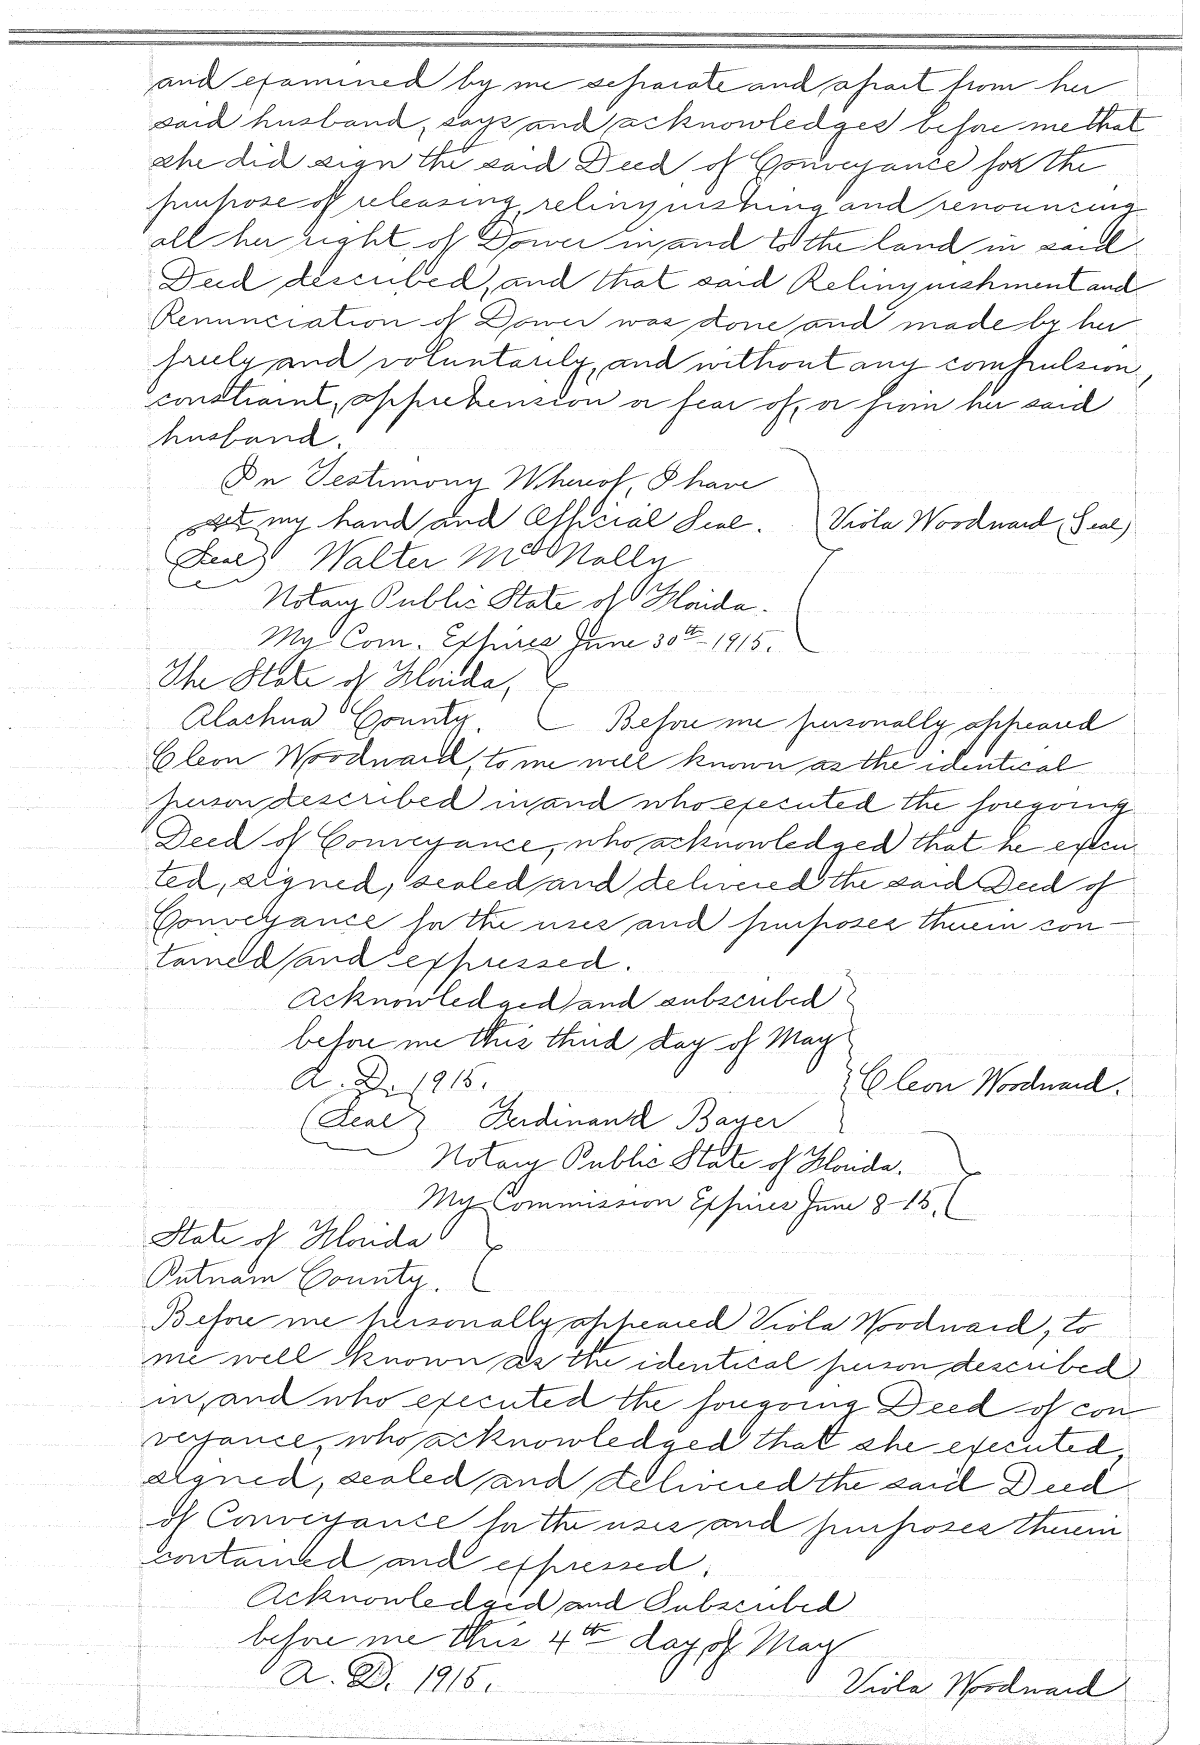 and examined by me separate and apart from her
said husband, says and acknowledges before me that
she did sign the said Deed of Conveyance for the
purpose of releasing, relinquishing and renouncing
all her right of Dower in and to the land in said
Deed described, and that said Relinquishment and
Renunciation of Dower was done and made by her
freely and voluntarily, and without any compulsion,
constraint, apprehension or fear of, or from her said
husband.
In Testimony Whereof, I have
set my hand and Official Seal. Viola Woodward (Seal)
(Seal) Walter McNally
Notary Public State of Florida.
My Com. Expires June 30th 1915.
The State of Florida,
Alachua County. Before me personally appeared
Cleon Woodward, to me well known as the identical
person described in and who executed the foregoing
Deed of Conveyance, who acknowledged that he execu
ted, signed, sealed and delivered the said Deed of
Conveyance for the uses and purposes therein con-
tained and expressed.
Acknowledged and subscribed
before me this third day of May
A. D. 1915. Cleon Woodward.
(Seal) Ferdinand Bayer
Notary Public State of Florida.
My Commission Expires June 8-15.
State of Florida
Putnam County.
Before me personally appeared Viola Woodward, to
me well known as the identical person described
in, and who executed the foregoing Deed of con
veyance, who acknowledged that she executed,
signed, sealed and delivered the said Deed
of Conveyance for the uses and purposes therein
contained and expressed.
Acknowledged and Subscribed
before me this 4th day of May
A. D. 1915. Viola Woodward